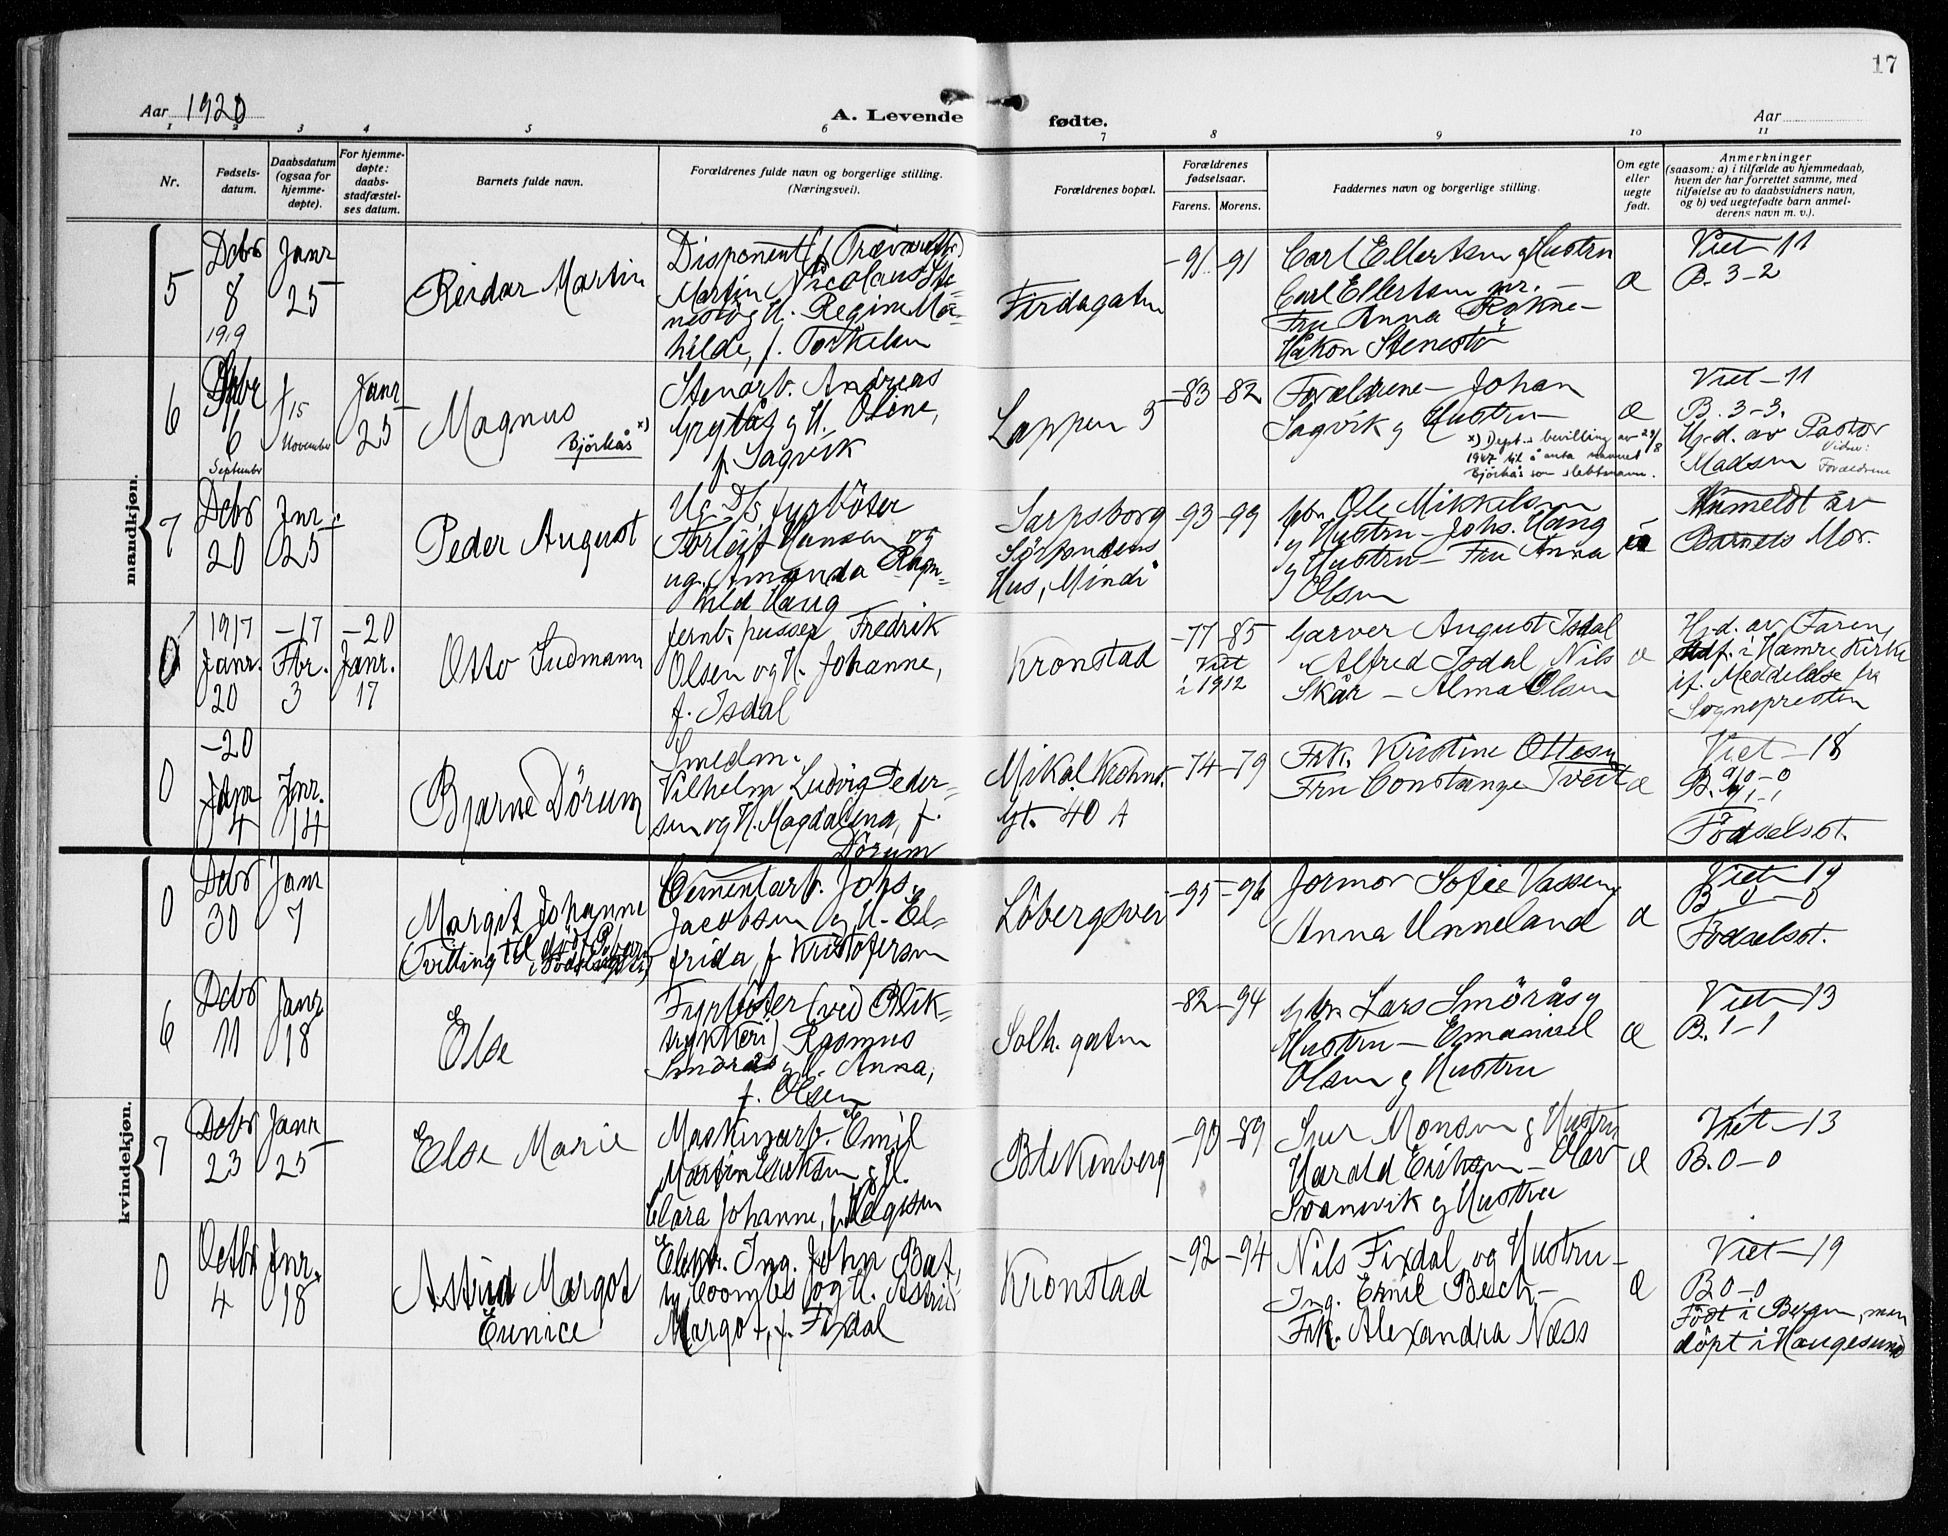 17
Aar 1920
A. Levende fødte.
Aar
1 2 3 4 5 6 7 8 9 10 11
Nr.
Fødsels-
datum.
Daabsdatum
(ogsaa for
hjemme-
døpte).
For hjemme-
døpte:
daabs-
stadfæstel-
ses datum.
Barnets fulde navn.
Forældrenes fulde navn og borgerlige stilling.
(Næringsvei).
Forældrenes bopæl.
Forældrenes
fødselsaar.
Farens. Morens.
Faddernes navn og borgerlige stilling.
Om egte
eller
uegte
født.
Anmerkninger
(saasom: a) i tilfælde av hjemmedaab,
hvem der har forrettet samme, med
tilføielse av to daabsvidners navn,
og b) ved uegtefødte barn anmel-
derens navn m. v.).
mandkjøn.
5
Debr
8
1919
Janr
25
Reidar Martin
Disponent
Martin Nicolaus Ste-
nestö og H. Regine Mat-
hilde, f. Torkelsen
Firdagaten
-91 -91
Carl Ellertsen og Hustru
Carl Ellertsen jnr. -
Fru Anna Rohne -
Håkon Stenestö
æ
Viet - 11
B. 3-2
6
6
September
15
November
Janr
25
Magnus
Bjørkås x)
Stenarb. Andreas
Grytås og H. Oline,
f. Sagvik
Lappen 5
-83 -82
Forældrene - Johan
Sagvik og Hustru
x) Dept.s bevilling av 29/8
1947 til å anta navnet
Bjørkås som slektsnavn.
æ
Viet - 11
B. 3-3.
Hj.d. av Pastor
Madsen
Vidner:
Forældrene
7
Debr
20
Jnr.
25
Peder August
Ug. D/s fyrböter
Torleif Hansen og
ug. Amanda Ragn-
hild Haug
Sarpsborg
Sörlandens
Hus, Minde
-93 -99
Ole Mikkelsen
og Hustru - Johs. Haug
og Hustru - Fru Anna
Olsen
Anmeldt av
Barnets Mor.
0
1917
Janr.
20
-17
Fbr.
3
-20
Janr.
17
Otto Sudmann
Jernb. pusser Fredrik
Olsen og H. Johanne,
f. Isdal
Kronstad
-77 -85
Viet
i 1912
Garver August Isdal
Alfred Isdal Nils
Skår - Alma Olsen
æ
Hj.d. av Faren,
i Hamre Kirke
if. Meddelelse fra
Sognepresten
0
-20
Jan
4
Jnr.
14
Bjarne Dörum
Smedm.
Vilhelm Ludvig Peder-
sen og H. Magdalena, f.
Dörum
Mikal Krohns
gt. 40 A
-74 -79
Frk. Kristine Ottesen
Fru Constance Tveit
æ
Viet - 18
B. 0-0
1-1
Födselsst.
kvindekjøn.
0
Debr
30
Janr
7
Margit Johanne
(Tvilling til
Cementarb. Johs.
Jacobsen og H. El-
frida, f. Kristofersen
Löbergsvei
-95 -96
Jormor Sofie Vassen,
Anna Unneland
æ
Viet - 19
B 0-0
Födselsst.
6
Debr
11
Janr
18
Else
Fyrböter (ved Blik-
trykkeri) Rasmus
Smörås og H. Anna,
f. Olsen
Solh. gaten
-82 -94
Lars Smörås og
Hustru - Emanuel
Olsen og Hustru
æ
Viet - 13
B. 1-1
7
Debr
23
Janr
25
Else Marie
Maskinarb. Emil
Martin Eriksen og H.
Clara Johanne, f. Helgesen
Blekenberg
-90 -89
Ivar Monsen og Hustru
Harald Eriksen - Olav
Svanevik og Hustru
æ
Viet - 13
B. 0-0
0
Octbr
4
Jnr.
18
Astrid Margot
Eunice
Elektr. Ing. John Bat,
Coombes og H. Astrid
Margot, f. Fixdal
Kronstad
-92 -94
Nils Fixdal og Hustru -
Ing. Emil Besch -
Frk. Alexandra Næss
æ
Viet - 19
B 0-0
Födt i Bergen, men
döpt i Haugesund